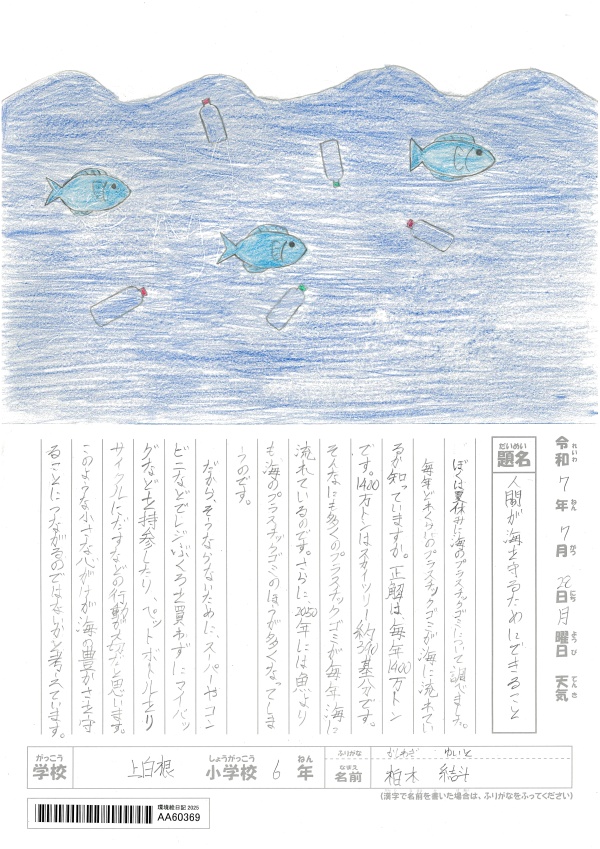 令和 7年 7月 22日 月曜日 天気
れいわ ねん がつ にち ようび てんき
だいめい
題名 人間が海を守るためにできること
ぼくは夏休みに海のプラスチックゴミについて調べました。
毎年どれくらいのプラスチックゴミが海に流れてい
るか知っていますか。正解は、毎年1400万トン
です。1400万トンはスカイツリー約390基分です。
そんなにも多くのプラスチックゴミが毎年、海に
流れているのです。さらに2050年には魚より
も海のプラスチックゴミのほうが多くなってしま
うのです。
だから、そうならないために、スーパーやコン
ビニなどでレジぶくろを買わずにマイバッ
グなどを持参したり、ペットボトルをリ
サイクルにだすなどの行動が大切だと思います。
このような小さな心がけが海の豊かさを守
ることにつながるのではないかと考えています。
がっこう しょうがっこう ねん
学校 上白根 小学校 6 年
ふりがな かしわぎ ゆいと
なまえ
名前 柏木 結斗
(漢字で名前を書いた場合は、ふりがなをふってください)
環境絵日記 2025
AA60369